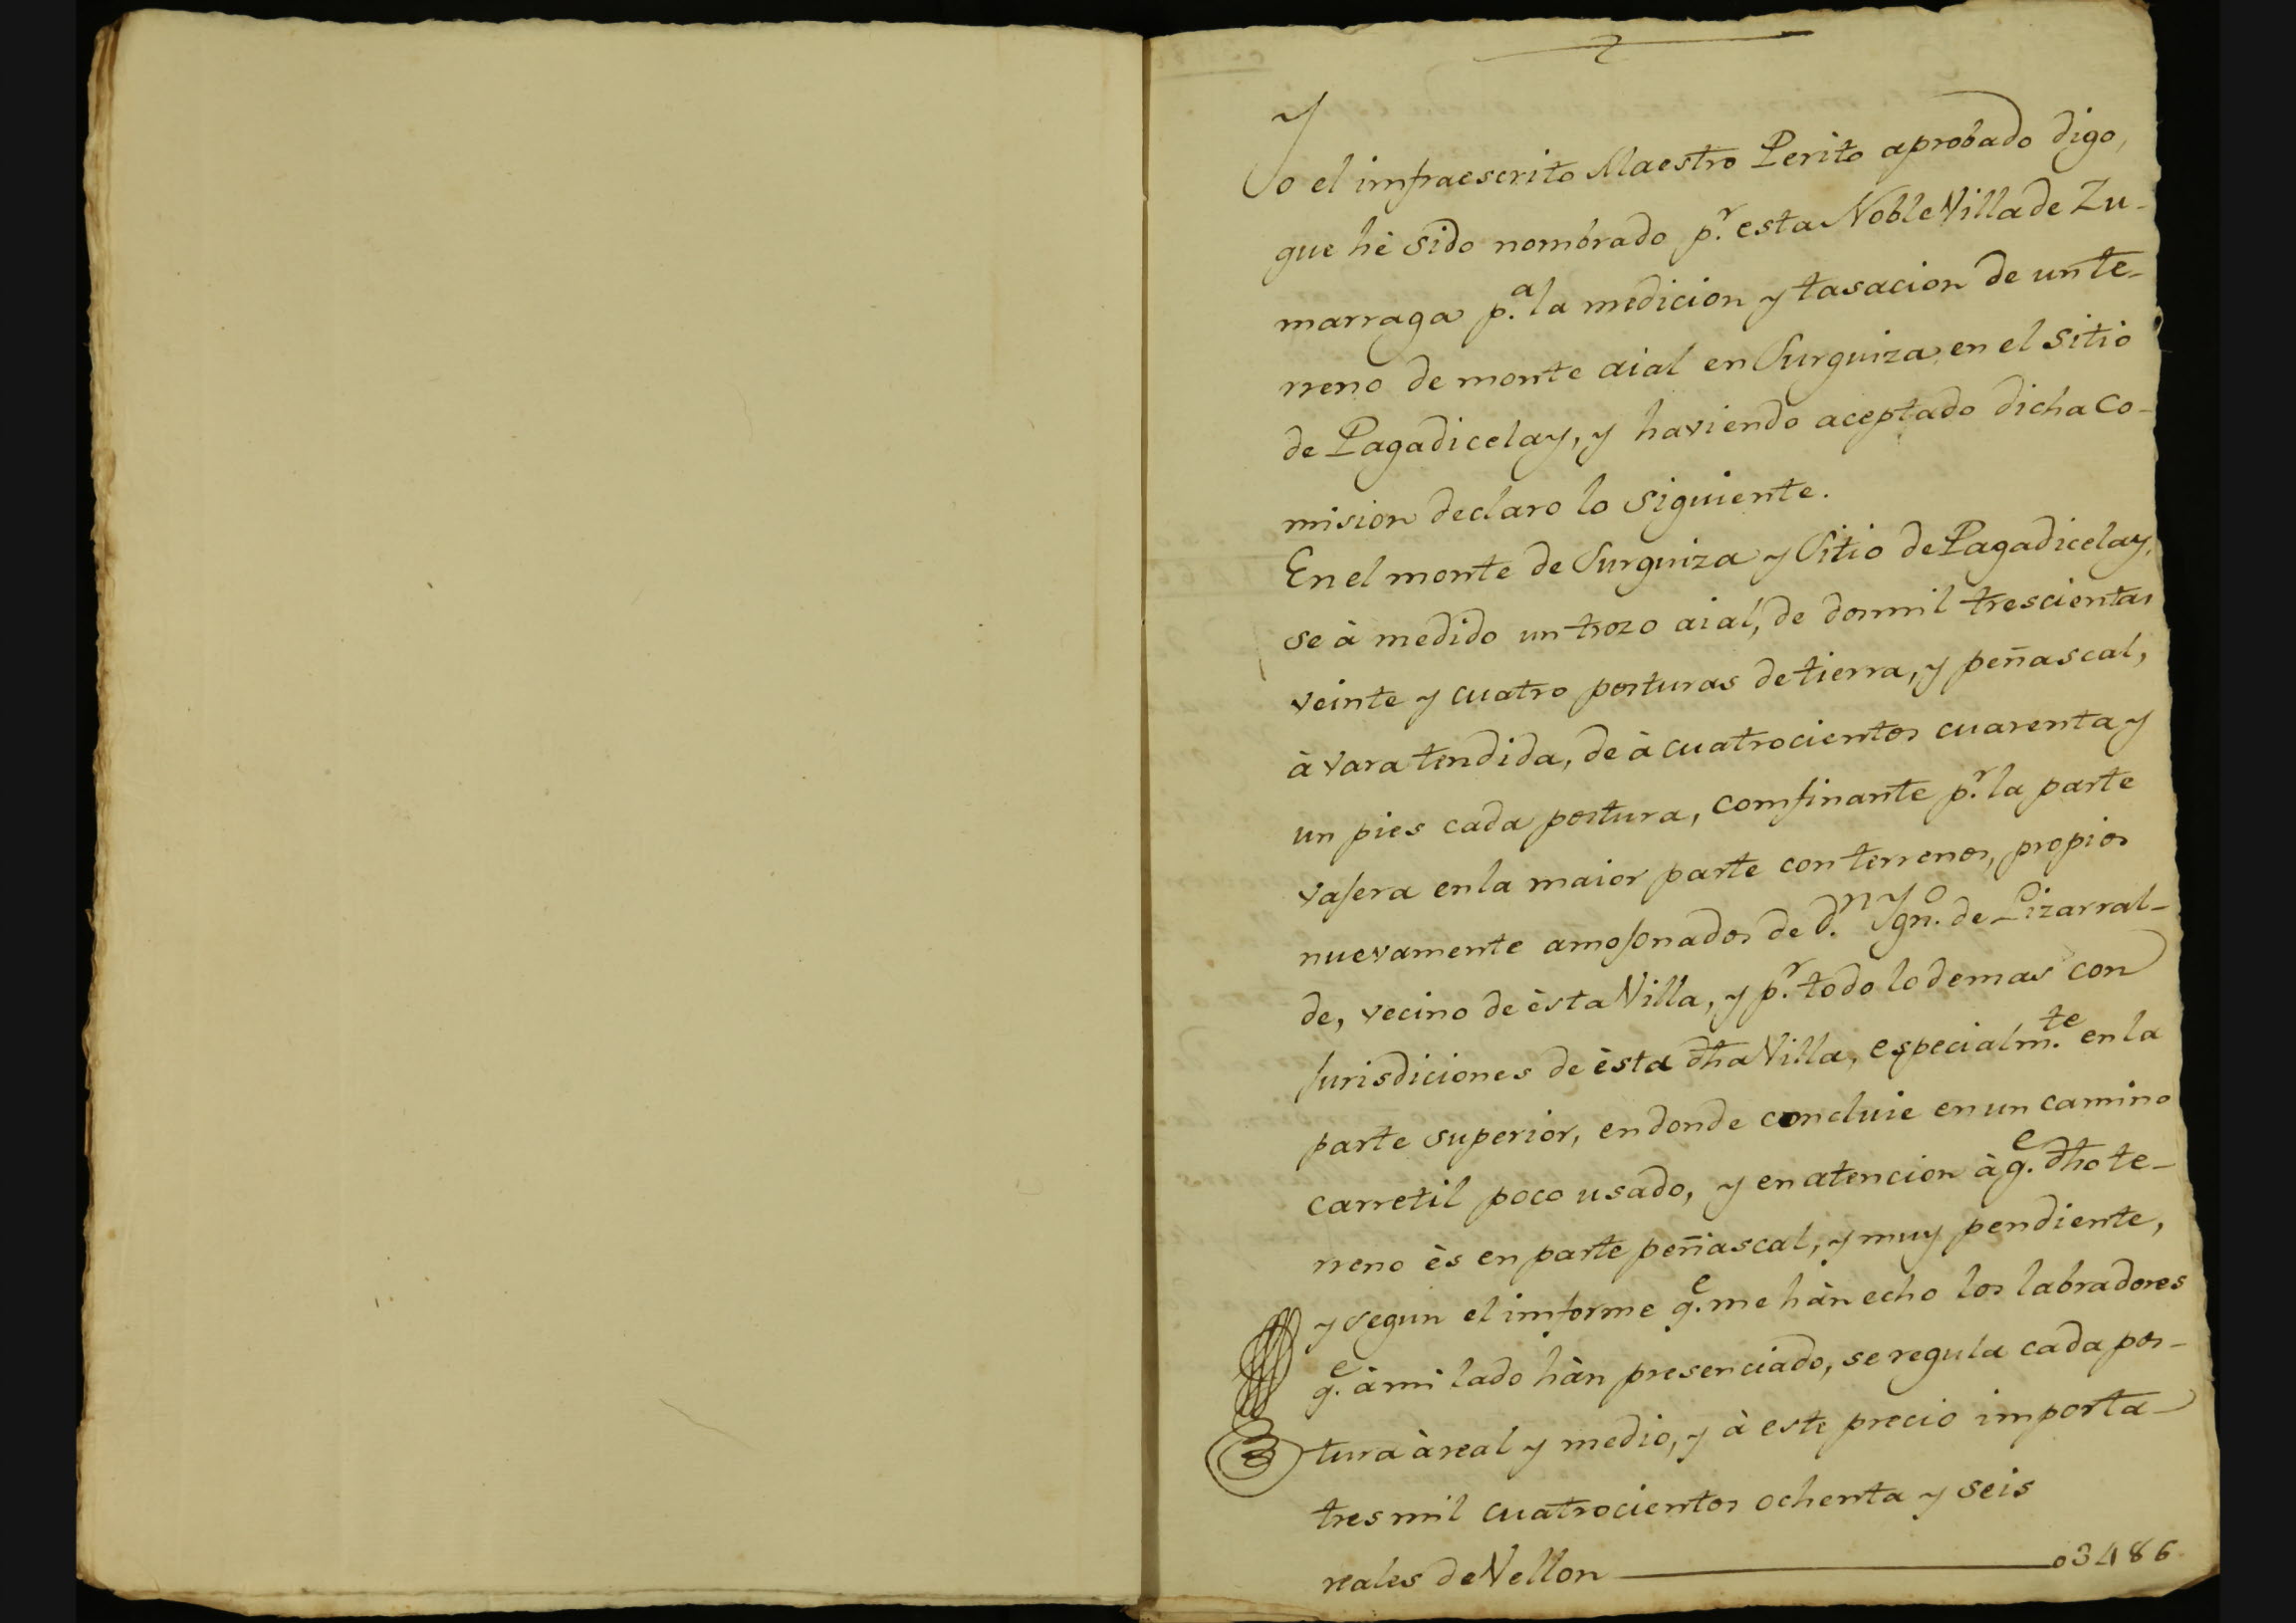 Yo el imfraescrito Maestro Perito aprobado digo,
que hè sido nombrado p.r esta Noble Villa de Zu-
marraga p.a la medicion y tasacion de un te-
rreno de monte aial en Surguiza en el sitio
de Pagadicelay, y haviendo aceptado dicha co-
mision declaro lo siguiente.
En el monte de Surguiza y Sitio de Pagadicelay,
se à medido un trozo aial, de dosmil trescientas
veinte y cuatro posturas de tierra, y peñascal,
à vara tendida, de à cuatrocientos cuarenta y
un pies cada postura, comfinante p.r la parte
vajera en la maior parte con terrenos, propios
nuevamente amojonados de d.n Ygn.o de Lizarral-
de, vecino de èsta Villa, y p.r todo lo demas con
jurisdiciones de èsta dha Villa, especialm.te en la
parte superior, en donde concluie en un camino
carretil poco usado, y en atencion à q.e dho te-
rreno ès en parte peñascal, y muy pendiente,
y segun el imforme q.e me hàn echo los labradores
q.e à mi lado hàn presenciado, se regula cada pos-
tura à real y medio, y à este precio importa
tres mil cuatrocientos ochenta y seis
reales de Vellon 03486